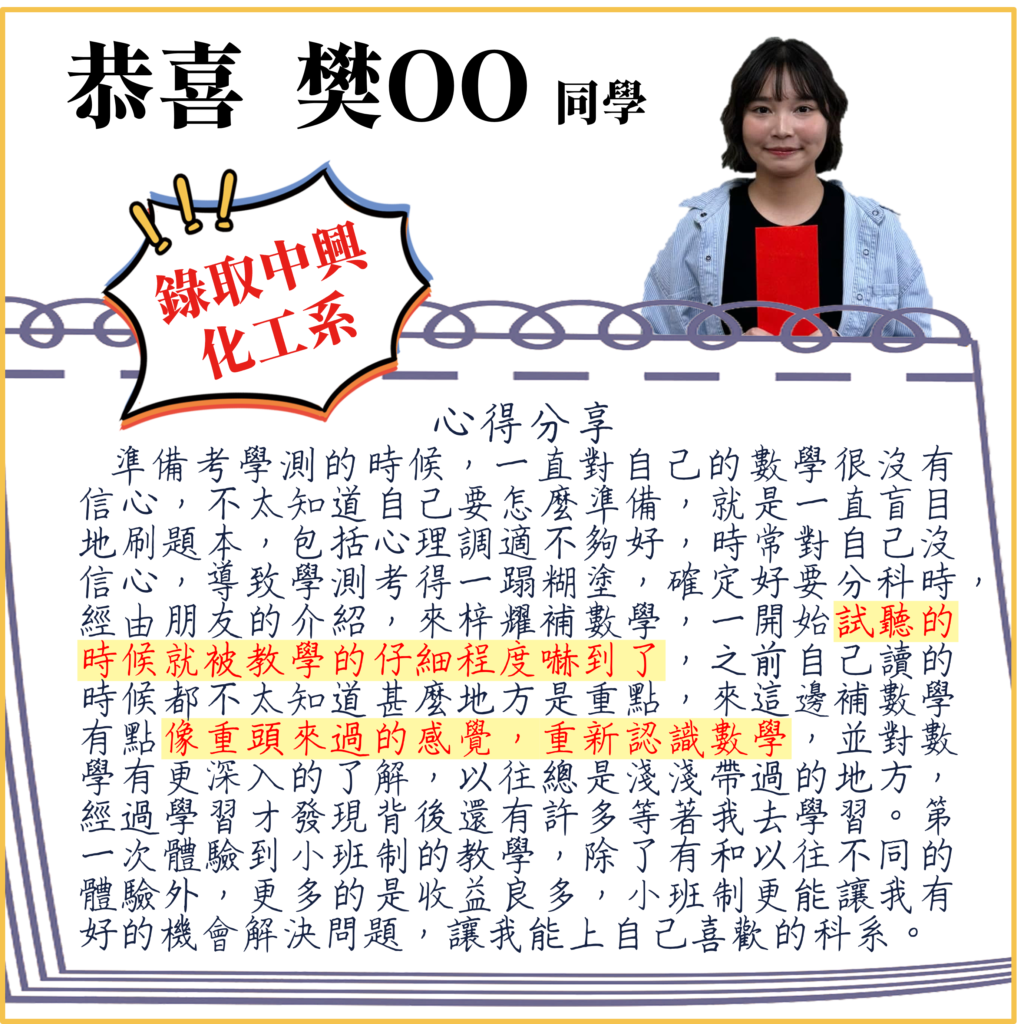 恭喜 樊OO 同學
錄取中興
化工系
心得分享
準備考學測的時候，一直對自己的數學很沒有
信心，不太知道自己要怎麼準備，就是一直盲目
地刷題本，包括心理調適不夠好，時常對自己沒
信心，導致學測考得一蹋糊塗，確定好要分科時，
經由朋友的介紹，來梓耀補數學，一開始試聽的
時候就被教學的仔細程度嚇到了，之前自己讀的
時候都不太知道甚麼地方是重點，來這邊補數學
有點像重頭來過的感覺，重新認識數學，並對數
學有更深入的了解，以往總是淺淺帶過的地方，
經過學習才發現背後還有許多等著我去學習。第
一次體驗到小班制的教學，除了有和以往不同的
體驗外，更多的是收益良多，小班制更能讓我有
好的機會解決問題，讓我能上自己喜歡的科系。